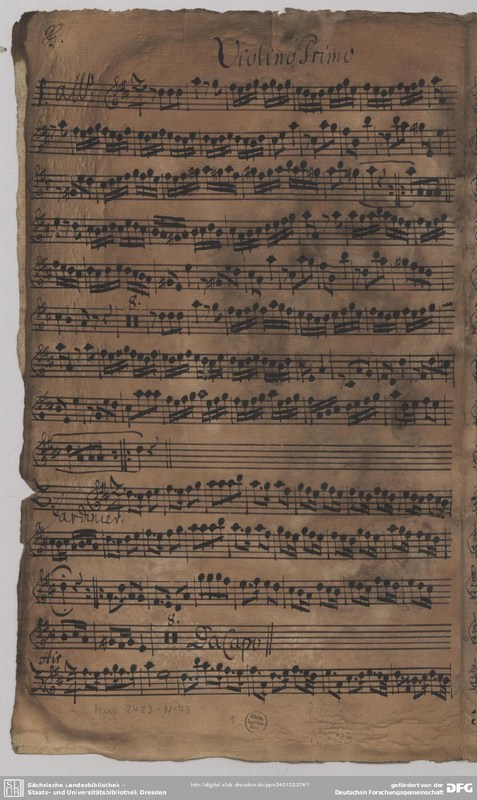 Violino Primo
8.
Jardinier.
8.
Da Capo
Air
Mus. 2423-N-43
1
Sächsische Landesbibliothek -
Staats- und Universitätsbibliothek Dresden
http://digital.slub-dresden.de/ppn343122374/1
gefördert von der
Deutschen Forschungsgemeinschaft
DFG